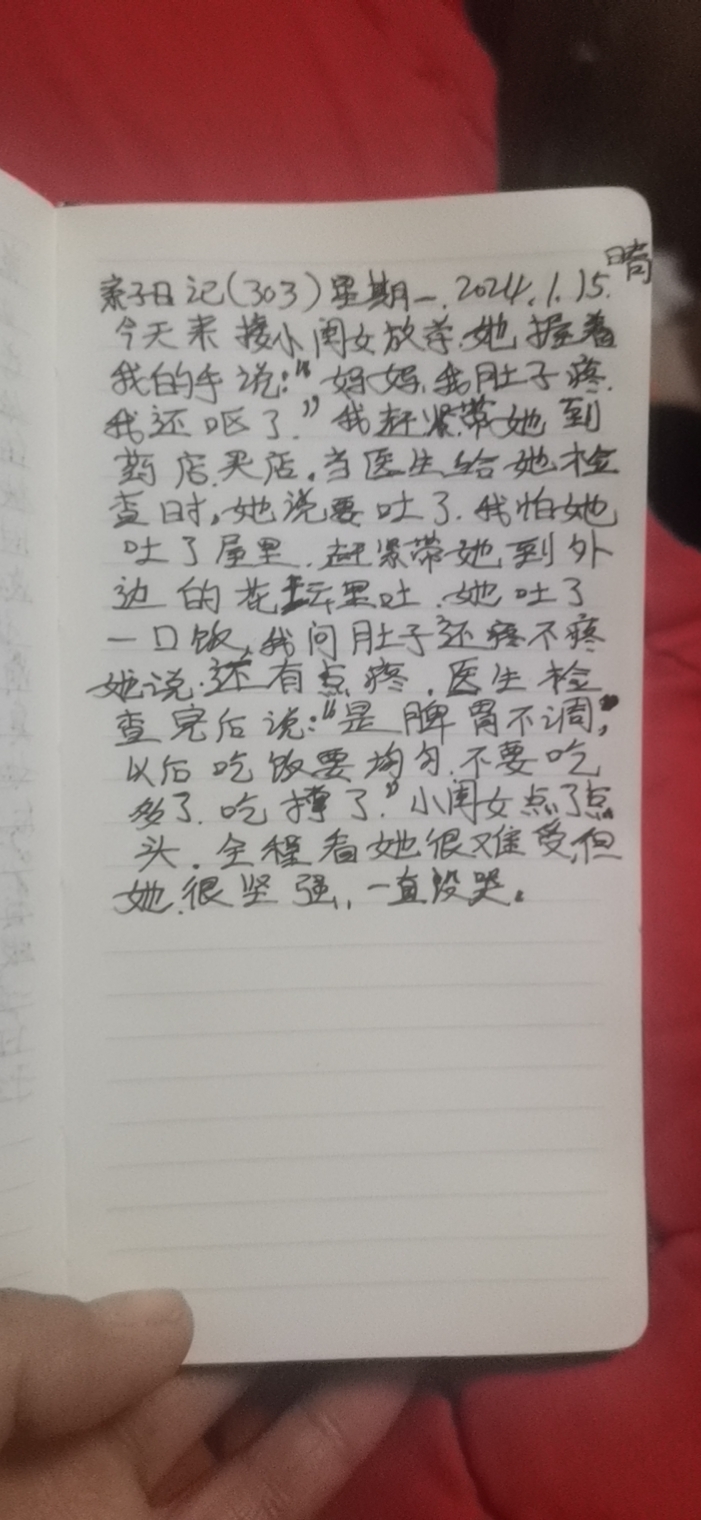 亲子日记(303)星期一.2024.1.15.晴
今天来接小闺女放学.她握着
我的手说:“妈妈,我肚子疼.
我还呕了.”我赶紧带她到
药店买店.当医生给她检
查时,她说要吐了.我怕她
吐了屋里.赶紧带她到外
边的花坛里吐.她吐了
一口饭,我问肚子还疼不疼
她说.还有点疼.医生检
查完后说:“是脾胃不调,”
以后吃饭要均匀.不要吃
多了.吃撑了.”小闺女点了点
头.全程看她很难受,但
她很坚强,一直没哭。